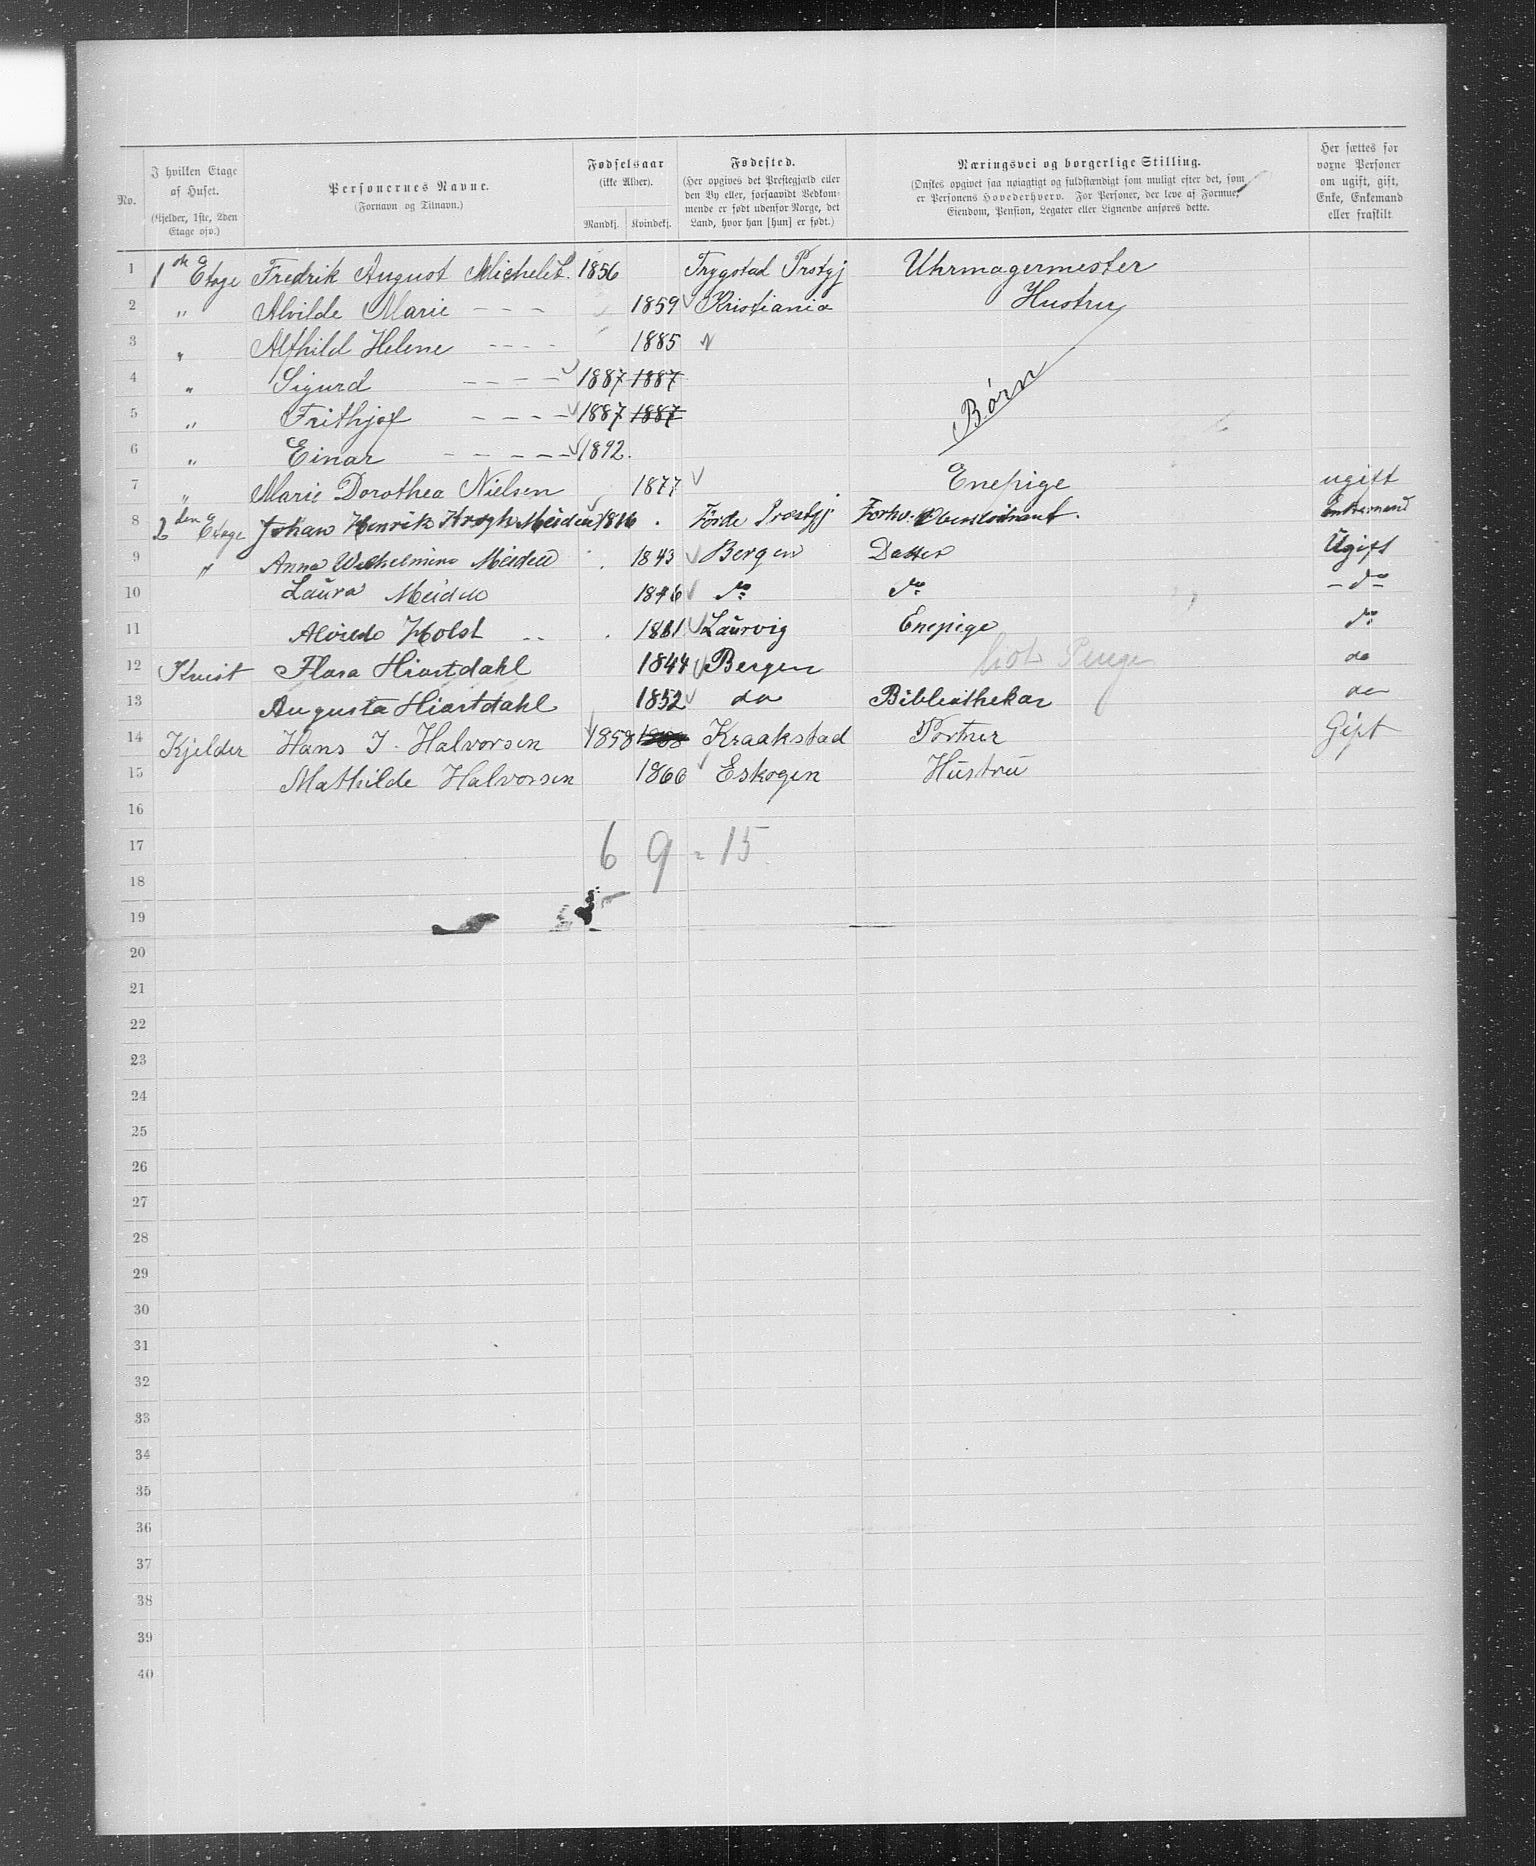 No.
I hvilken Etage af Huset.
(Kjelder, 1ste, 2den Etage osv.)
Personernes Navne.
(Fornavn og Tilnavn.)
Fødselsaar
(ikke Alder).
Mandkj.
Kvindekj.
Fødested.
(Her opgives det Prestegjæld eller den By eller, forsaavidt Vedkommende er født udenfor Norge, det Land, hvor han [hun] er født.)
Næringsvei og borgerlige Stilling.
(Ønskes opgivet saa nøiagtigt og fuldstændigt som muligt efter det, som er Personens Hovederhverv. For Personer, der leve af Formue, Eiendom, Pension, Legater eller Lignende anføres dette.
Her sættes for voxne Personer om ugift, gift, Enke, Enkemand eller fraskilt
1 1ste Etage Fredrik August Michelet. 1856 Trygstad Prstgj Uhrmagermester
2 " Alvilde Marie - - - 1859 Kristiania Hustru
3 " Alfhild Helene - - - - 1885 "
4 " Sigurd - - - - 1887 1887
5 " Frithjof - - - - 1887 1887 Børn
6 " Einar - - - - - 1892.
7 " Marie Dorothea Nielsen 1877 Enepige ugift
8 2den Etage Johan Henrik Krogh Meidell 1816 . Förde Præstgj. Forhv. Oberstløitnant. Enkemand
9 " Anna Wilhelmine Meidell 1843 Bergen Datter Ugift
10 Laura Meidell 1846 do do - do -
11 Alvilde Holst - - 1881 Laurvig Enepige do
12 Kvist Flora Hiortdahl 1844 Bergen Penge do
13 Augusta Hiortdahl 1852 do Bibliothekar do
14 Kjelder Hans J. Halvorsen 1858 Kraakstad Portner Gift
15 Mathilde Halvorsen 1860 Eskogen Hustru
16
17 6 9 = 15
18
19
20
21
22
23
24
25
26
27
28
29
30
31
32
33
34
35
36
37
38
39
40